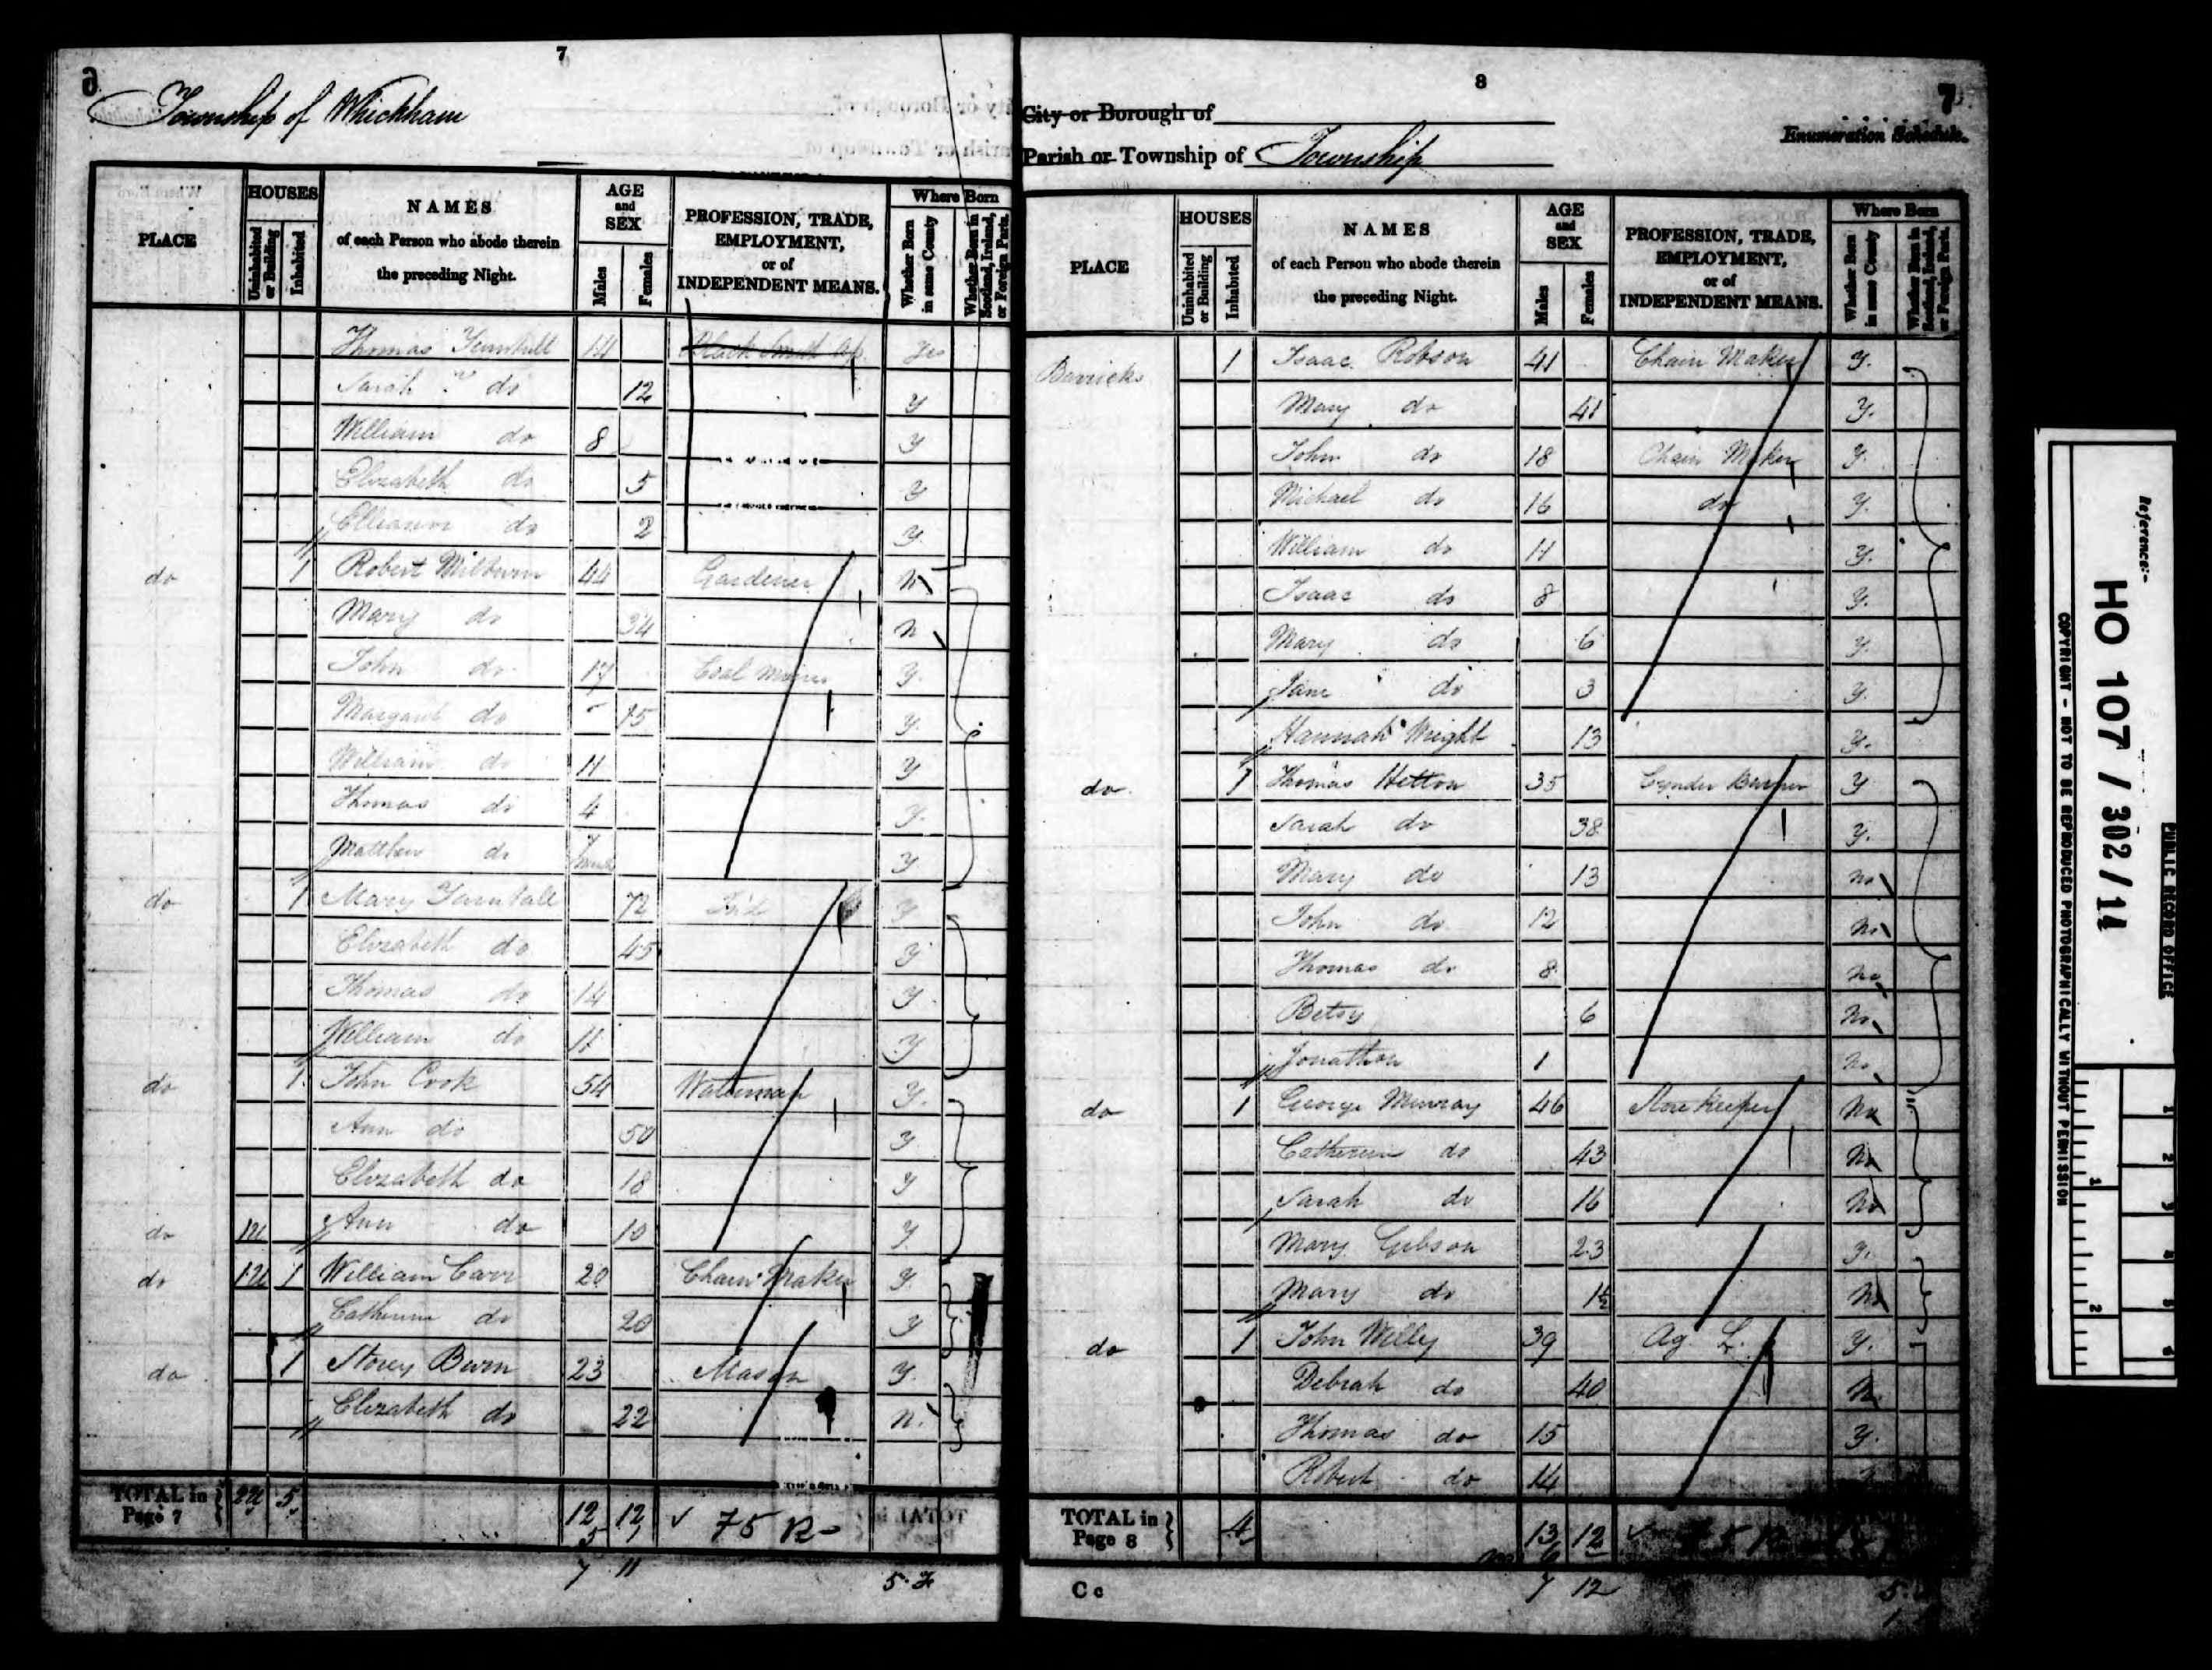 6
7
Township of Whickham
PLACE
HOUSES
Uninhabited or Building
Inhabited
NAMES
of each Person who abode therein
the preceding Night.
AGE
and
SEX
Males
Females
PROFESSION, TRADE,
EMPLOYMENT,
or of
INDEPENDENT MEANS.
Where Born
Whether Born in same County
Whether Born in Scotland, Ireland, or Foreign Parts.
Thomas 14 Black Smith Ap. Yes
Sarah do 12 y
William do 8 y
Elizabeth do 5 y
Elleanor do 2 y
do 1 Robert Milburn 44 Gardener n
Mary do 34 n
John do 17 Coal Miner y
Margaret do 15 y
William do 11 y
Thomas do 4 y
Matthew do 7 y
do 1 Mary 72 y
Elizabeth do 45 y
Thomas do 14 y
William do 11 y
do 1 John Cook 54 Waterman y
Ann do 50 y
Elizabeth do 18 y
do 1u Ann do 10 y
do 1u 1 William Carr 20 Chain Maker y
Catherine do 20 y
do 1 Storey Burn 23 Mason y
Elizabeth do 22 n
TOTAL in
Page 7
2u 5
12 12
5 1
75 R
7 11
8
7
City or Borough of
Enumeration Schedule.
Parish or Township of Township
PLACE
HOUSES
Uninhabited or Building
Inhabited
NAMES
of each Person who abode therein
the preceding Night.
AGE
and
SEX
Males
Females
PROFESSION, TRADE,
EMPLOYMENT,
or of
INDEPENDENT MEANS.
Where Born
Whether Born in same County
Whether Born in Scotland, Ireland, or Foreign Parts.
Barricks 1 Isaac Robson 41 Chain Maker y.
Mary do 41 y.
John do 18 Chain Maker y.
Michael do 16 do y.
William do 11 y.
Isaac do 8 y.
Mary do 6 y.
Jane do 3 y.
Hannah Wright 13 y.
do 1 Thomas Hetton 35 Cynder Burner y
Sarah do 38 y.
Mary do 13 no
John do 12 no
Thomas do 8 no
Betsy 6 no
Jonathon 1 no
do 1 George Murray 46 Store Keeper no
Catherine do 43 no
Sarah do 16 no
Mary Gibson 23 y.
Mary do no
do 1 John Welly 39 Ag. L. y.
Debrah do 40 n
Thomas do 15 y.
Robert do 14
TOTAL in
Page 8
4
13 12
6
7 12
Cc
Reference:-
HO 107 / 302/11
PUBLIC RECORD OFFICE
COPYRIGHT - NOT TO BE REPRODUCED PHOTOGRAPHICALLY WITHOUT PERMISSION
1
2